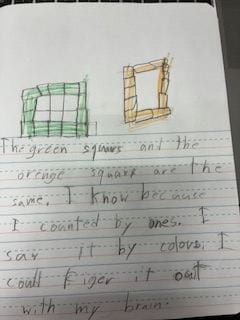 The green squars and the
orenge square are the
same. I know because
I counted by ones. I
saw it by colous. I
could figer it out
with my brain.